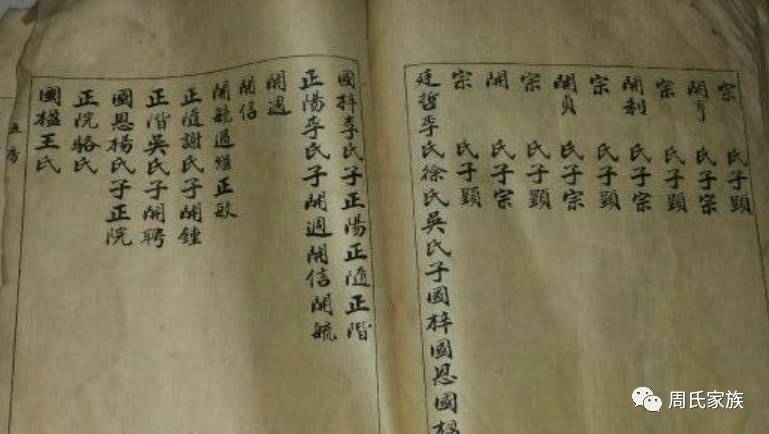 宗 氏子顕
開亨 氏子宗
宗 氏子顕
開利 氏子宗
宗 氏子顕
開貞 氏子宗
宗 氏子顕
開 氏子宗
宗 氏子顕
廷哲李氏徐氏吳氏子國梓國恩國
國梓李氏子正陽正隨正階
正陽李氏子開週開信開毓
開週
開信
開毓過継正敏
正隨謝氏子開鍾
正階吳氏子開聘
國恩楊氏子正院
正院駱氏
國楹王氏
五房
周氏家族